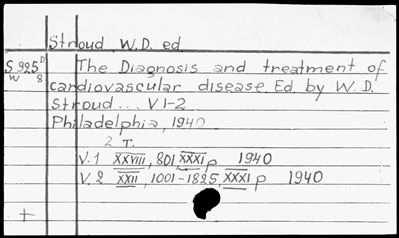 Stroud, W.D. ed
S 925 D The Diagnosis and treatment of
w 8 cardiovascular disease. Ed. by W. D.
Stroud... V 1-2
Philadelphia, 1940
2 T.
V. 1 XXVIII, 801, XXXI p 1940
V. 2 XXII, 1001-1825, XXXI p 1940
+